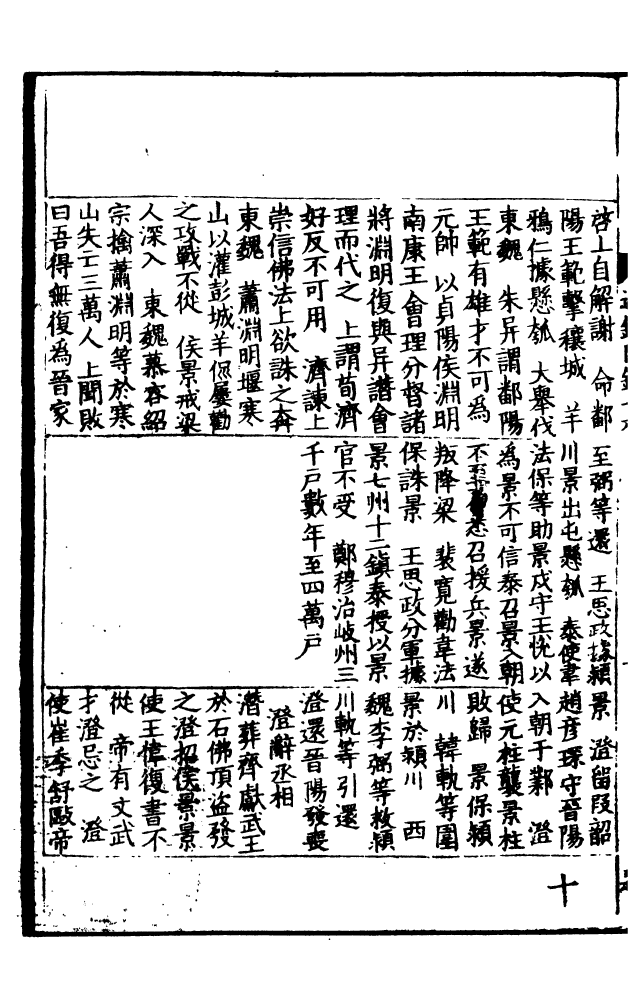 啓上自解謝 命鄱
陽王範擊穰城 羊
鴉仁據懸瓠 大舉伐
東魏 朱异謂鄱陽
王範有雄才不可為
元帥 以貞陽侯淵明
南康王會理分督諸
將淵明復與异譖會
理而代之 上謂荀濟
好反不可用 濟諫上
崇信佛法上欲誅之奔
東魏 蕭淵明堰寒
山以灌彭城羊侃屢勸
之攻戰不從 侯景戒梁
人深入 東魏慕容紹
宗擒蕭淵明等於寒
山失亡三萬人 上聞敗
曰吾得無復為晉家
至弼等還 王思政據潁
川景出屯懸瓠 泰使韋
法保等助景戍守王悅以
為景不可信泰召景入朝
不至 悉召援兵景遂
叛降梁 裴寬勸韋法
保誅景 王思政分軍據
景七州十二鎮泰授以景
官不受 鄭穆治岐州三
千戶數年至四萬戶
景 澄留段韶
趙彥琛守晉陽
入朝于鄴 澄
使元柱襲景柱
敗歸 景保潁
川 韓軌等圍
景於潁川 西
魏李弼等救潁
川軌等引還
澄還晉陽發喪
澄辭丞相
潛葬齊獻武王
於石佛頂盜發
之澄招侯景景
使王偉復書不
從 帝有文武
才澄忌之 澄
使崔季舒毆帝
十